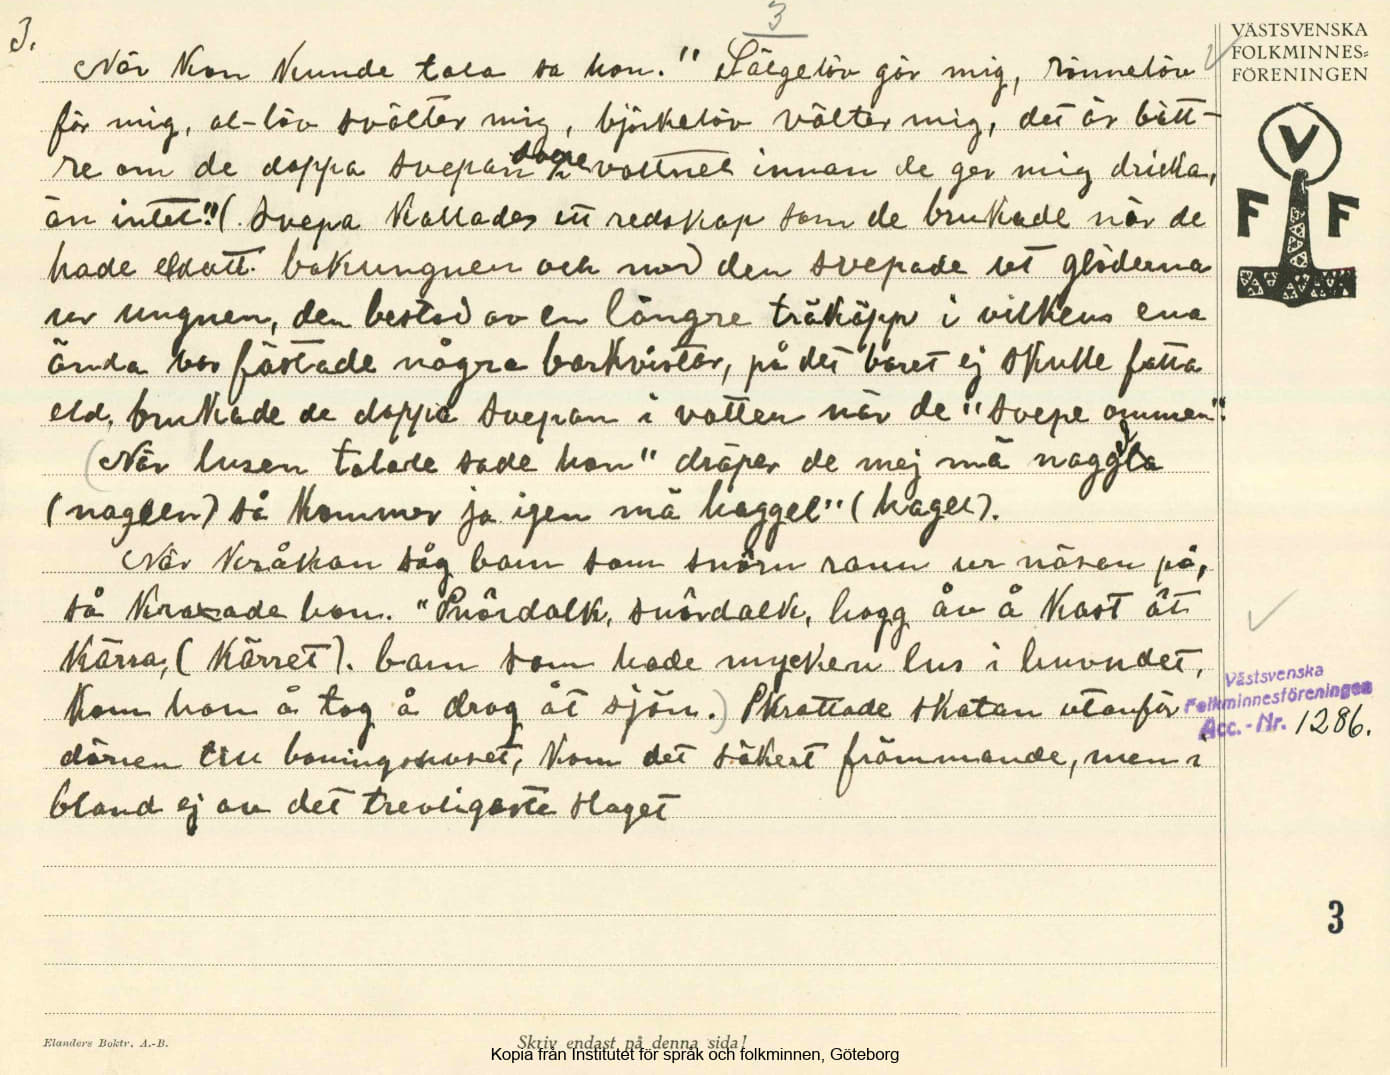 3.
3
VÄSTSVENSKA
FOLKMINNES=
FÖRENINGEN
När kon kunde tala sa hon." Sälgelöv gör mig, rönnelöv
för mig, al-löv svälter mig, björkelöv välter mig, det är bätt-
re om de doppa svepan i svepevattnet innan de ger mig dricka,
än intet."(. Svepa kallades ett redskap som de brukade när de
hade eldatt bakungnen och med den svepade ut glöderna
ur ungnen, den bestod av en längre träkäpp i vilkens ena
ända var fästade några barkvistar, på det baret ej skulle fatta
eld, brukade de doppa svepan i vatten när de "svepe ommen".
(När lusen talade sade hon" dräper de mej mä naggla
(naglen) så kommer ja igen mä haggel" (hagel).
När kråkan såg barn som snörn rann ur näsan på,
så kraxade hon. "Snördalk, snördalk, hogg åv å kast åt
kärra, (kärret). barn som hade mycken lus i huvudet,
kom hon å tog å drog åt sjön.) Skrattade skatan utanför
dörren till boningshuset, kom det säkert främmande, men i
bland ej av det trevligaste slaget
V
F F
Västsvenska
Folkminnesföreningen
Acc.-Nr. 1286.
3
Elanders Boktr. A.-B.
Skriv endast på denna sida!
Kopia från Institutet för språk och folkminnen, Göteborg